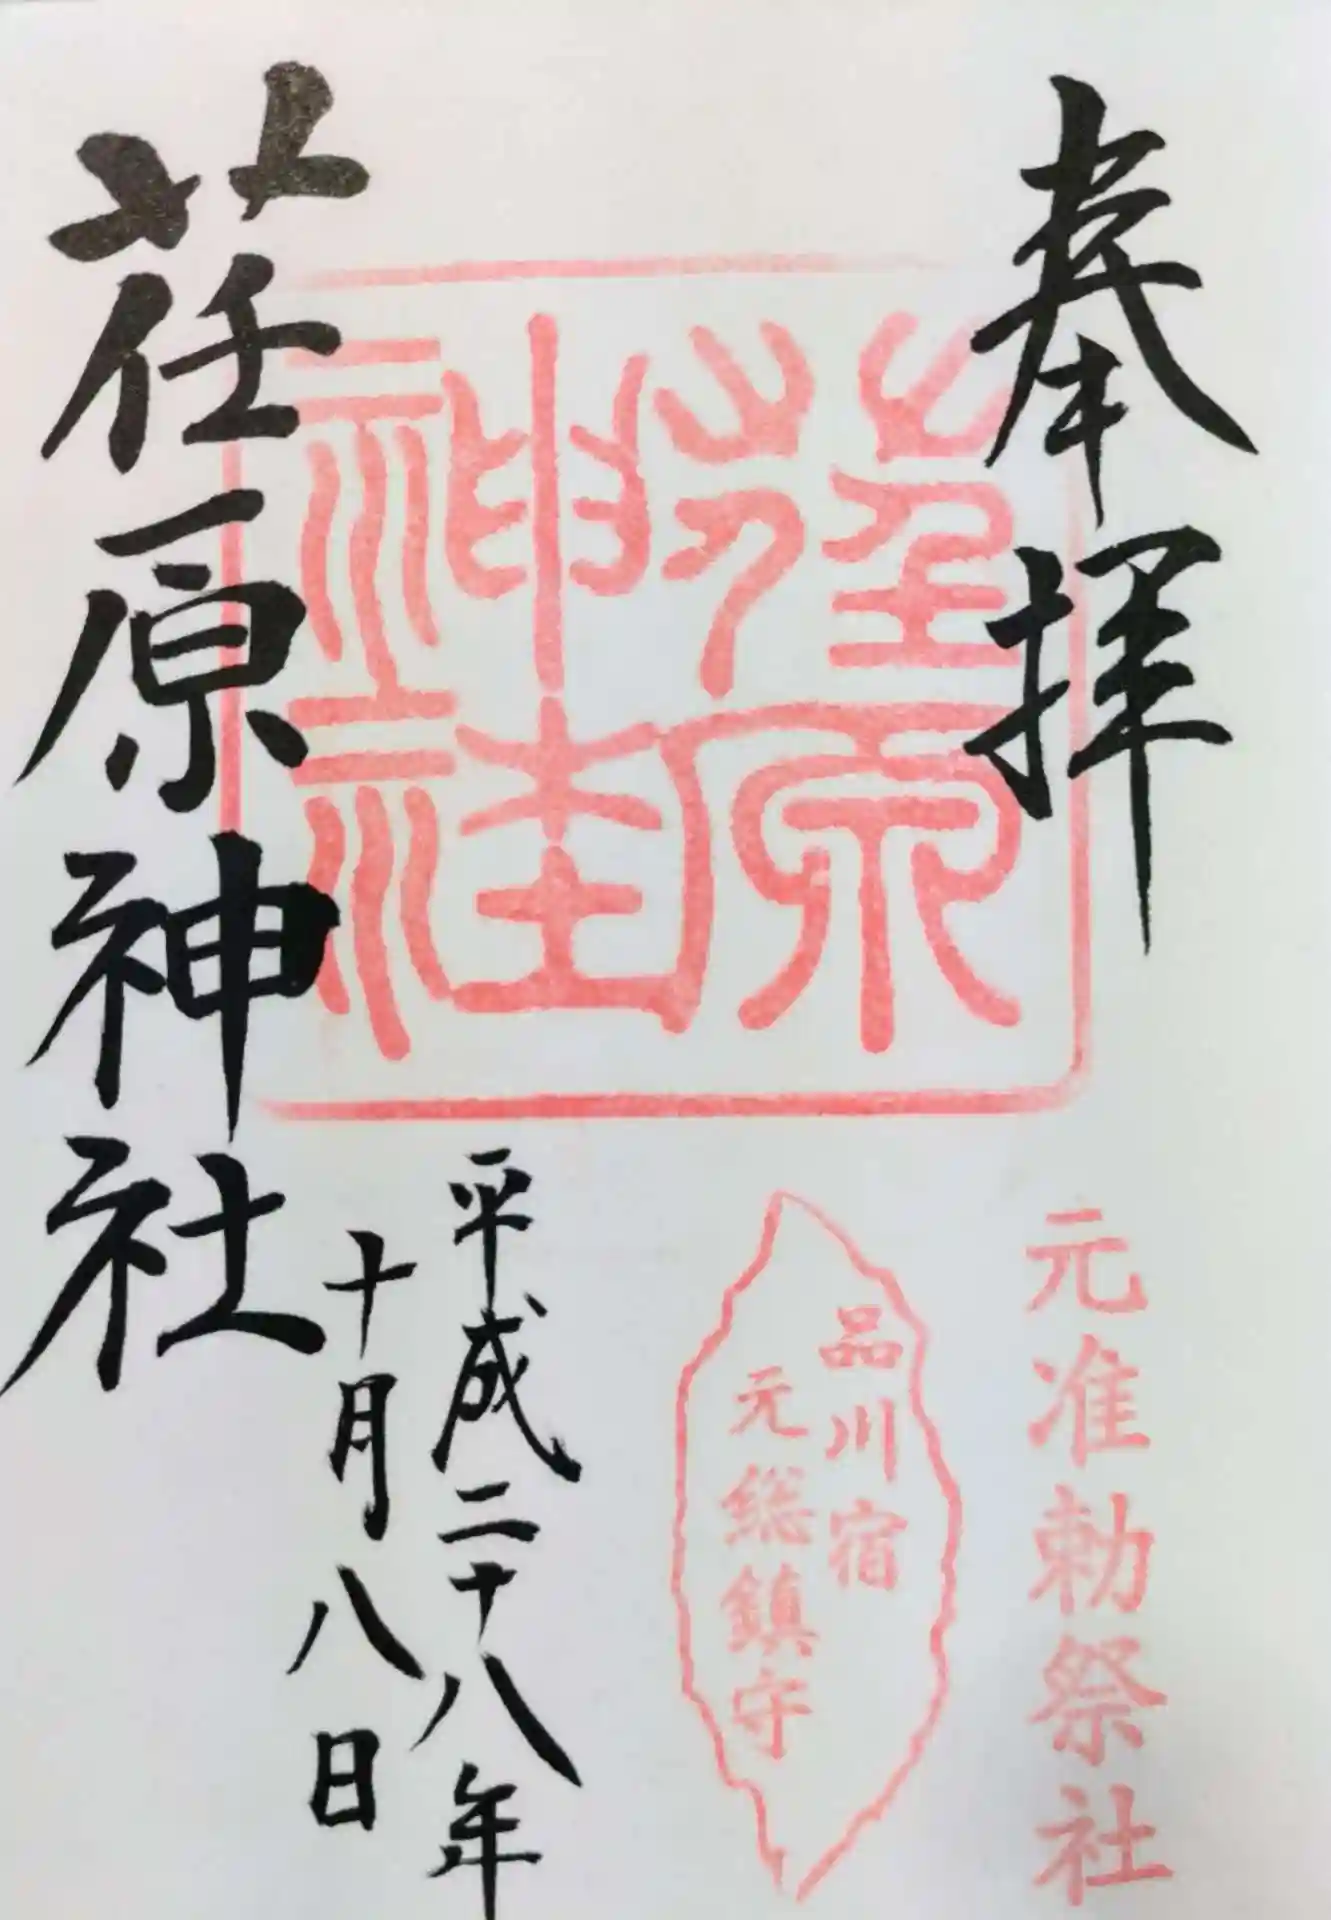 奉拝
元准勅祭社
荏原
神社
品川宿
元総鎮守
平成二十八年
十月八日
荏原神社